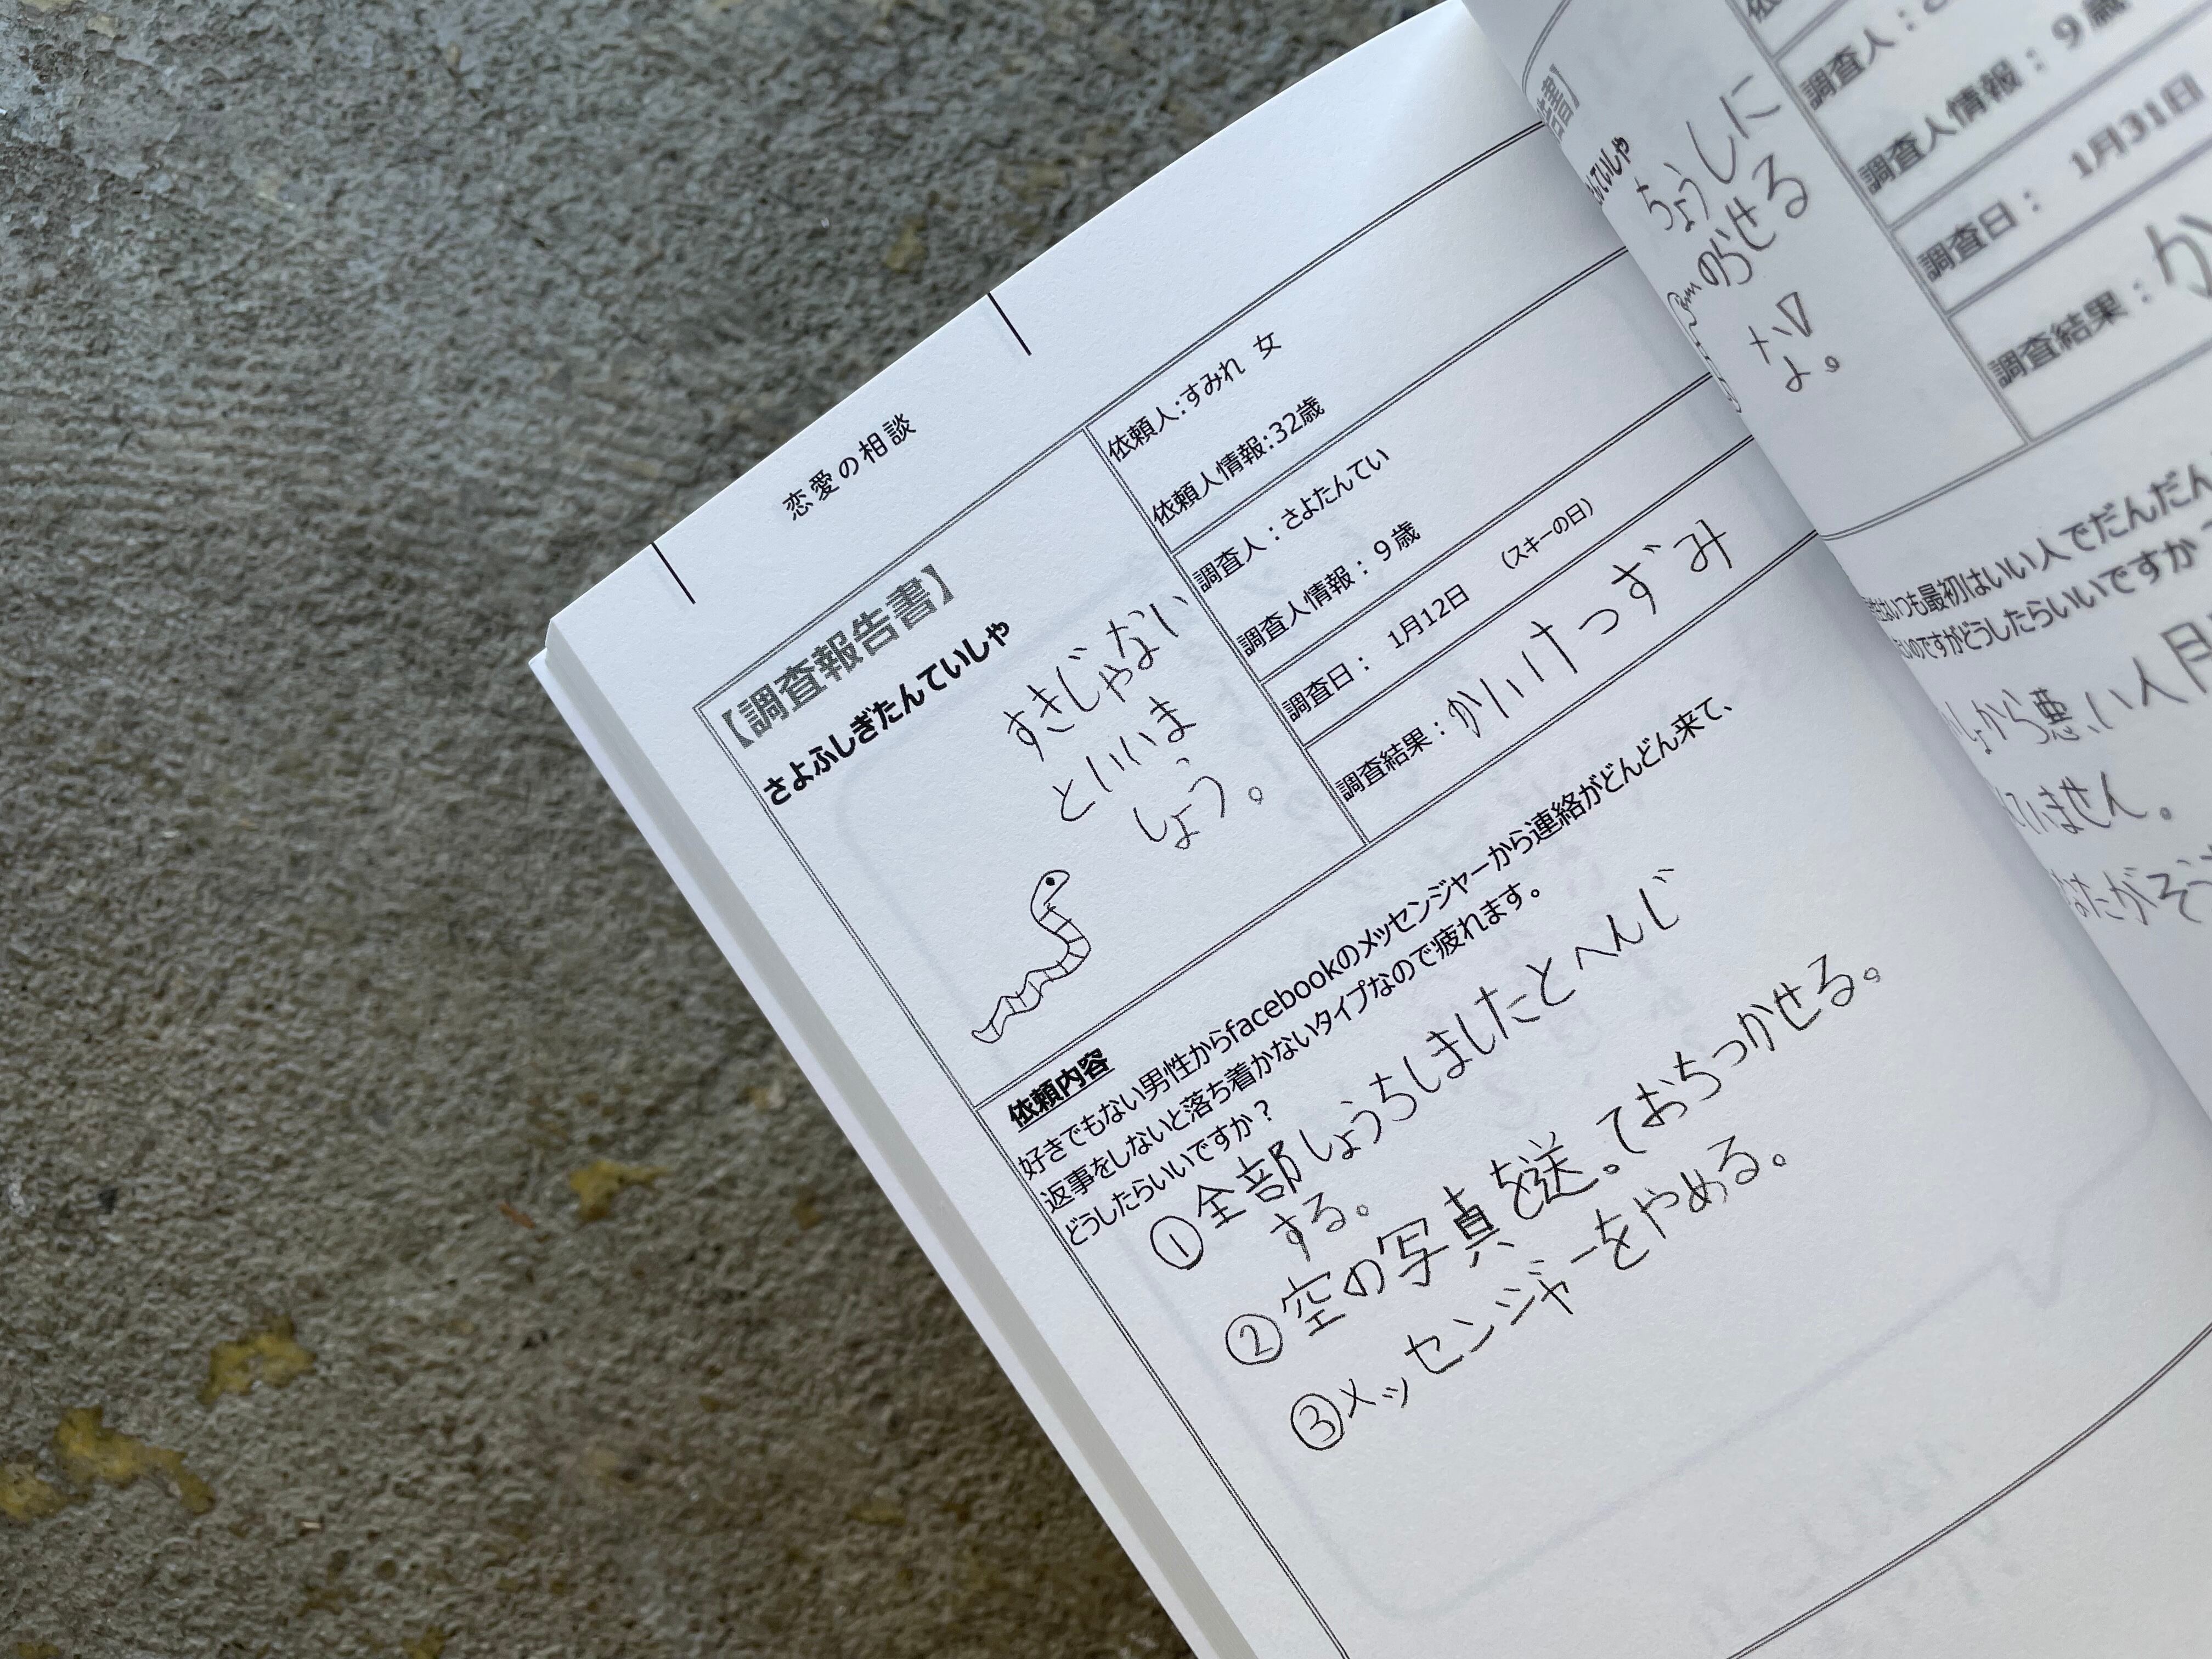 恋愛の相談
【調査報告書】
さよふしぎたんていしゃ
すきじゃない
といいま
しょう。
依頼人:すみれ 女
依頼人情報:32歳
調査人：さよたんてい
調査人情報：9歳
調査日： 1月12日 （スキーの日）
調査結果：かいけつずみ
依頼内容
好きでもない男性からfacebookのメッセンジャーから連絡がどんどん来て、
返事をしないと落ち着かないタイプなので疲れます。
どうしたらいいですか？
①全部しょうちしましたとへんじ
する。
②空の写真を送っておちつかせる。
③メッセンジャーをやめる。
告書】
たんていしゃ
ちょうしに
のらせる
な。
調査人：さ
調査人情報：9歳
調査日： 1月31日
調査結果：か
はいつも最初はいい人でだんだん
のですがどうしたらいいですか
しょから悪い人
ていません。
なたがそう